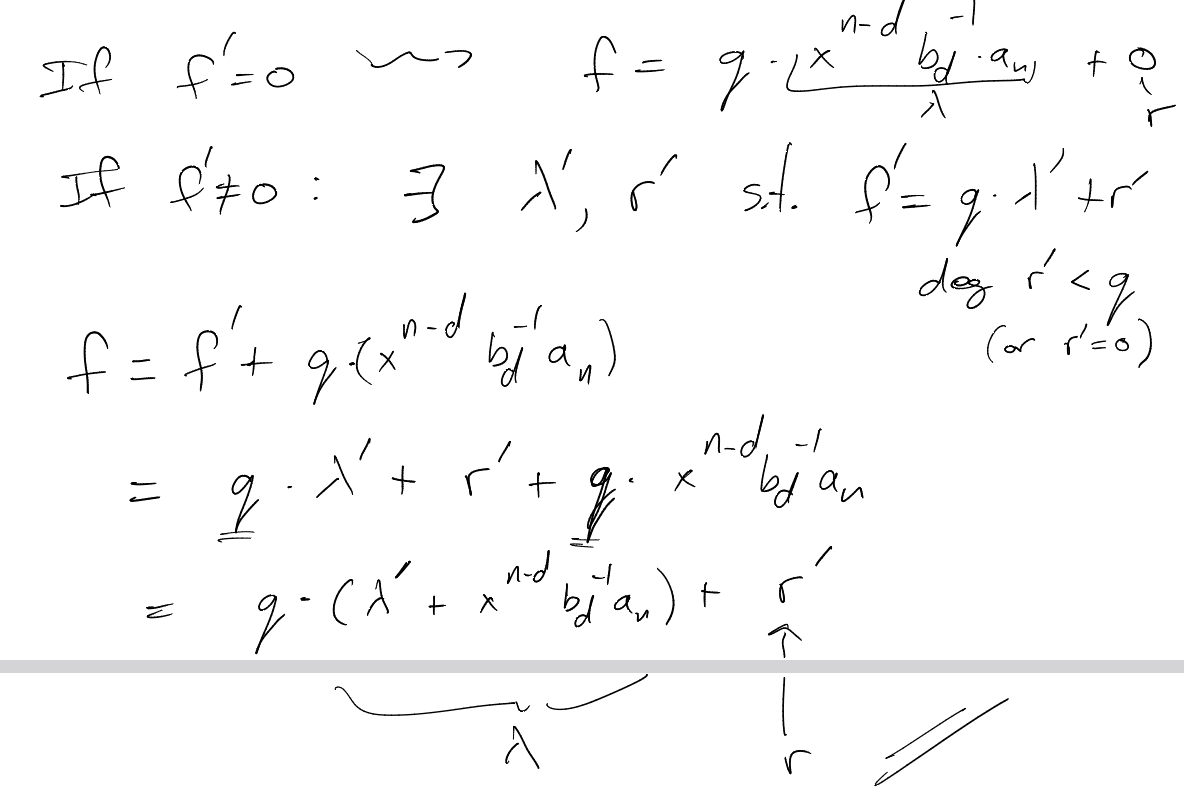 If f'=0 ⇝ f = q · (x^{n-d} b_d^{-1} · a_n) + 0
λ r
If f'≠0 : ∃ λ', r' s.t. f' = q · λ' + r'
deg r' < q
(or r'=0)
f = f' + q·(x^{n-d} b_d^{-1} a_n)
= q · λ' + r' + q · x^{n-d} b_d^{-1} a_n
= q · (λ' + x^{n-d} b_d^{-1} a_n) + r'
↑
λ r